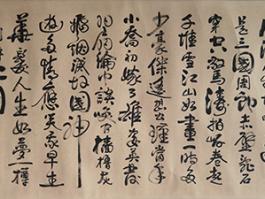 是三國周郎赤壁亂石
穿空驚濤拍岸卷起
千堆雪江山如畫一時多
少豪傑遙想公瑾當年
小喬初嫁了雄姿英發
羽扇綸巾談笑間檣櫓灰
飛煙滅故國神
遊多情應笑我早生
華髮人生如夢一樽